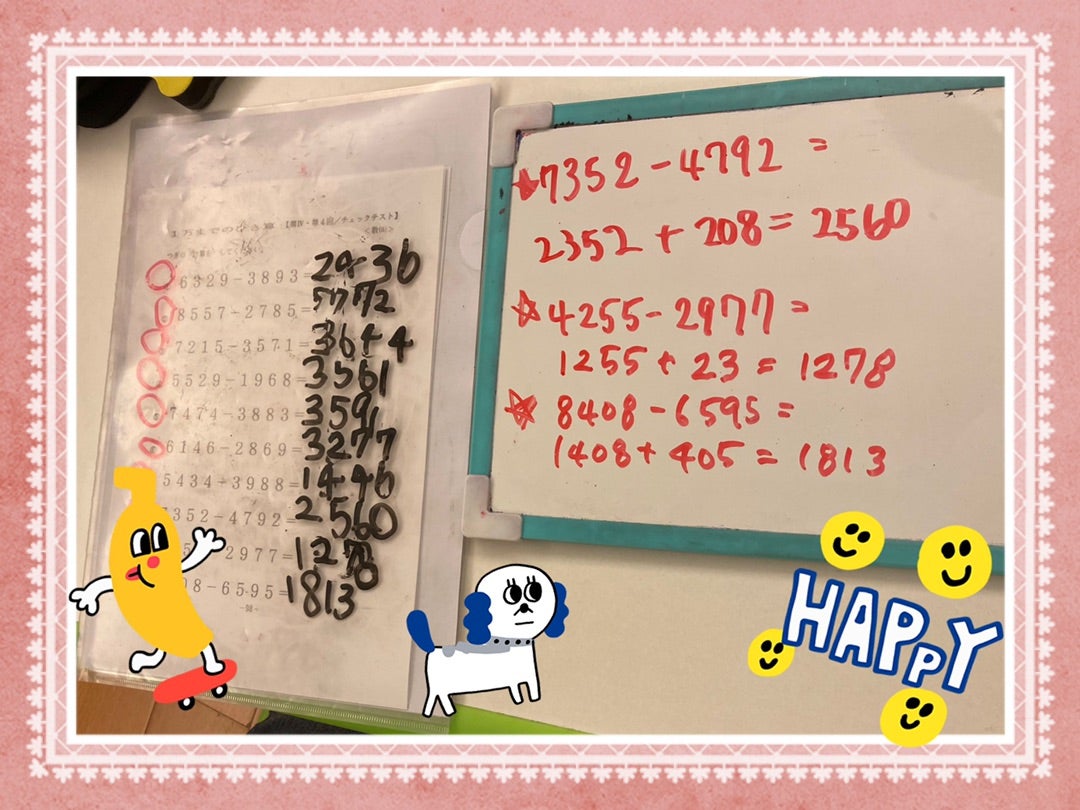 【期IV・第4回/チェックテスト】
<数(A)>
6329-3893=2436
8557-2785=5772
7215-3571=3644
5529-1968=3561
7474-3883=3591
6146-2869=3277
5434-3988=1446
352-4792=2560
2977=1278
8-6595=1813
-98-
7352-4792=
2352+208=2560
4255-2977=
1255+23=1278
8408-6595=
1408+405=1813
HAPPY